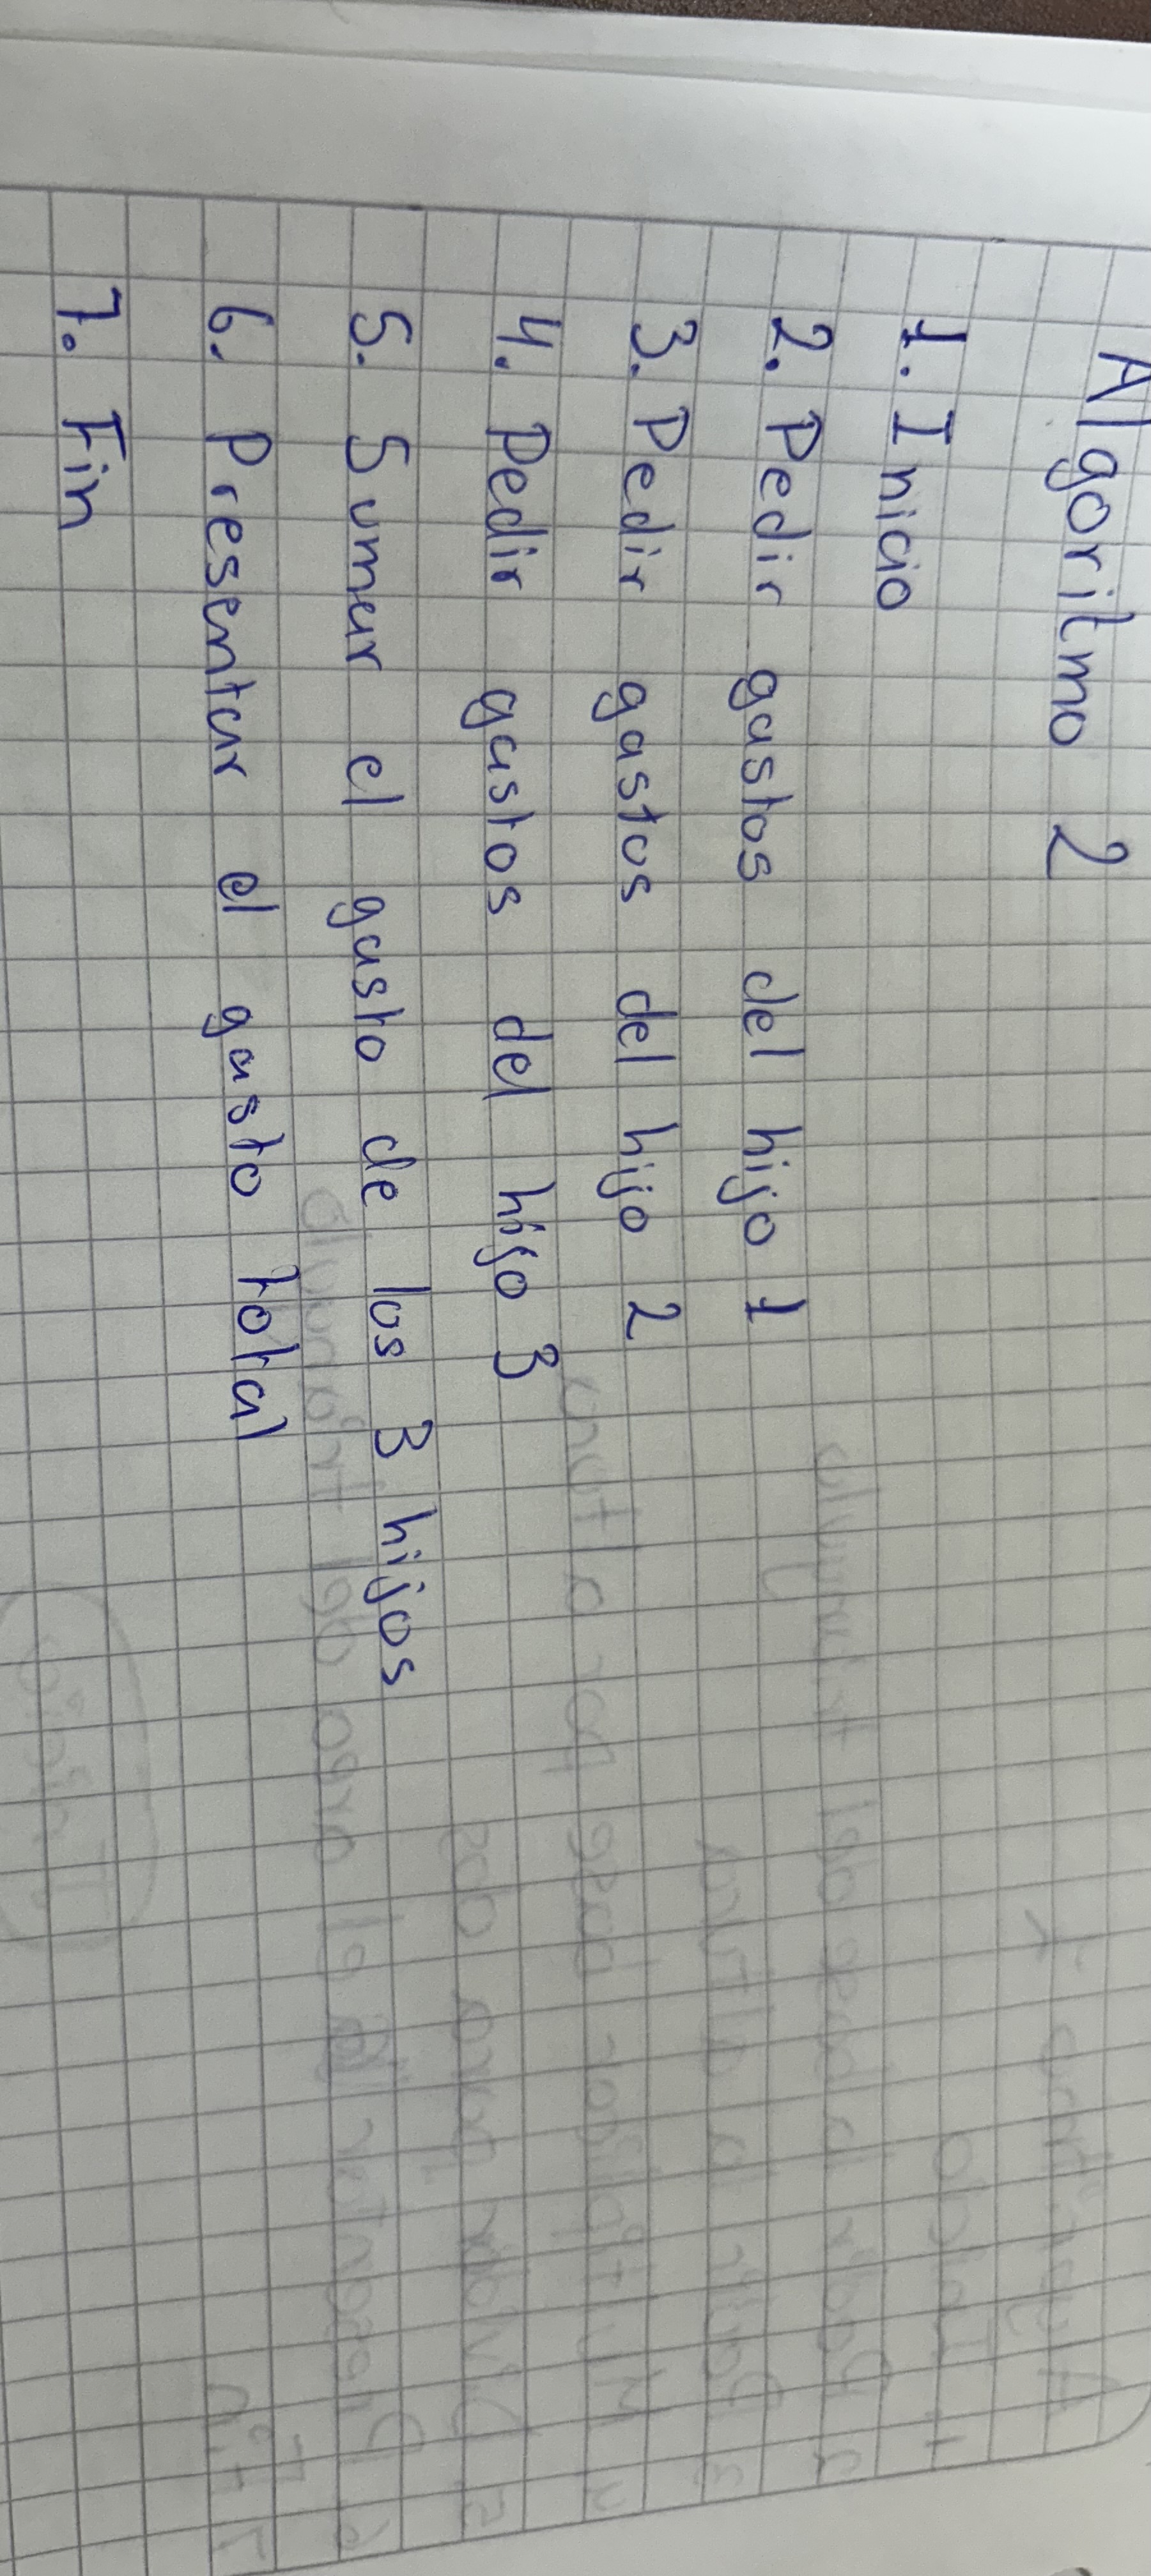 Algoritmo 2
1. Inicio
2. Pedir gastos del hijo 1
3. Pedir gastos del hijo 2
4. Pedir gastos del hijo 3
5. Sumar el gasto de los 3 hijos
6. Presentar el gasto total
7. Fin